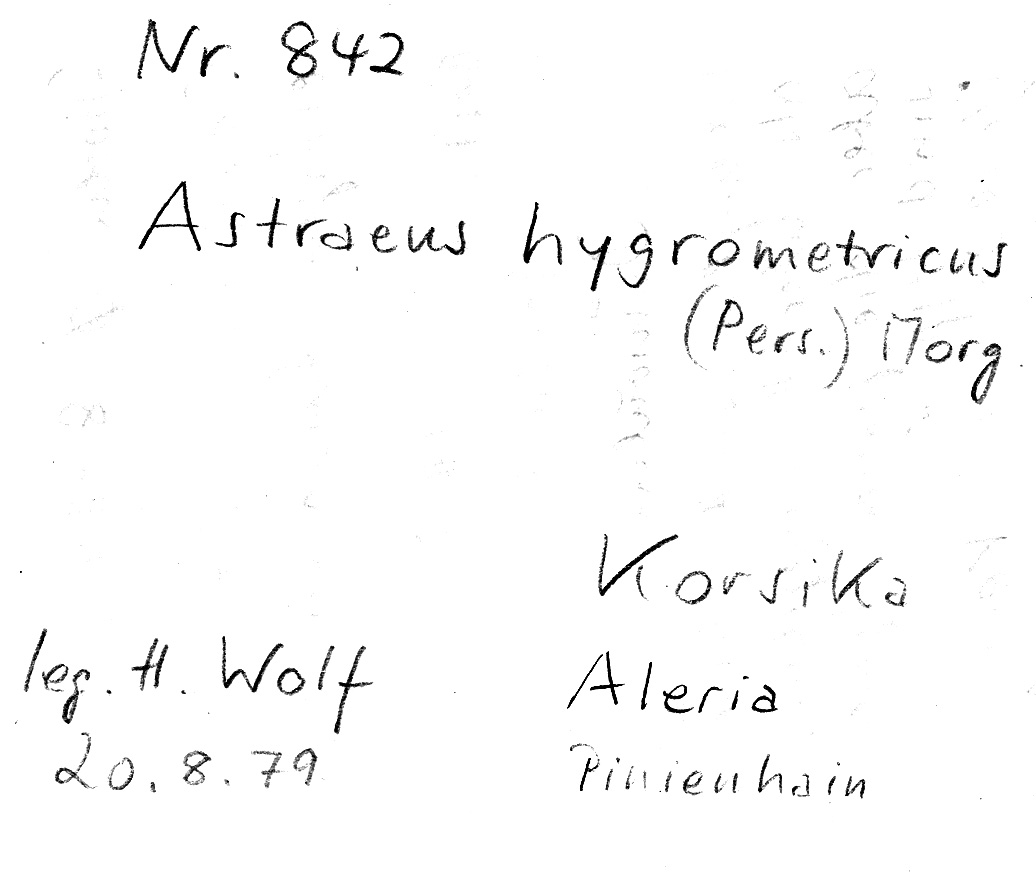 Nr. 842
Astraeus hygrometricus
(Pers.) Morg.
Korsika
leg. H. Wolf
Aleria
20.8.79
Pinienhain